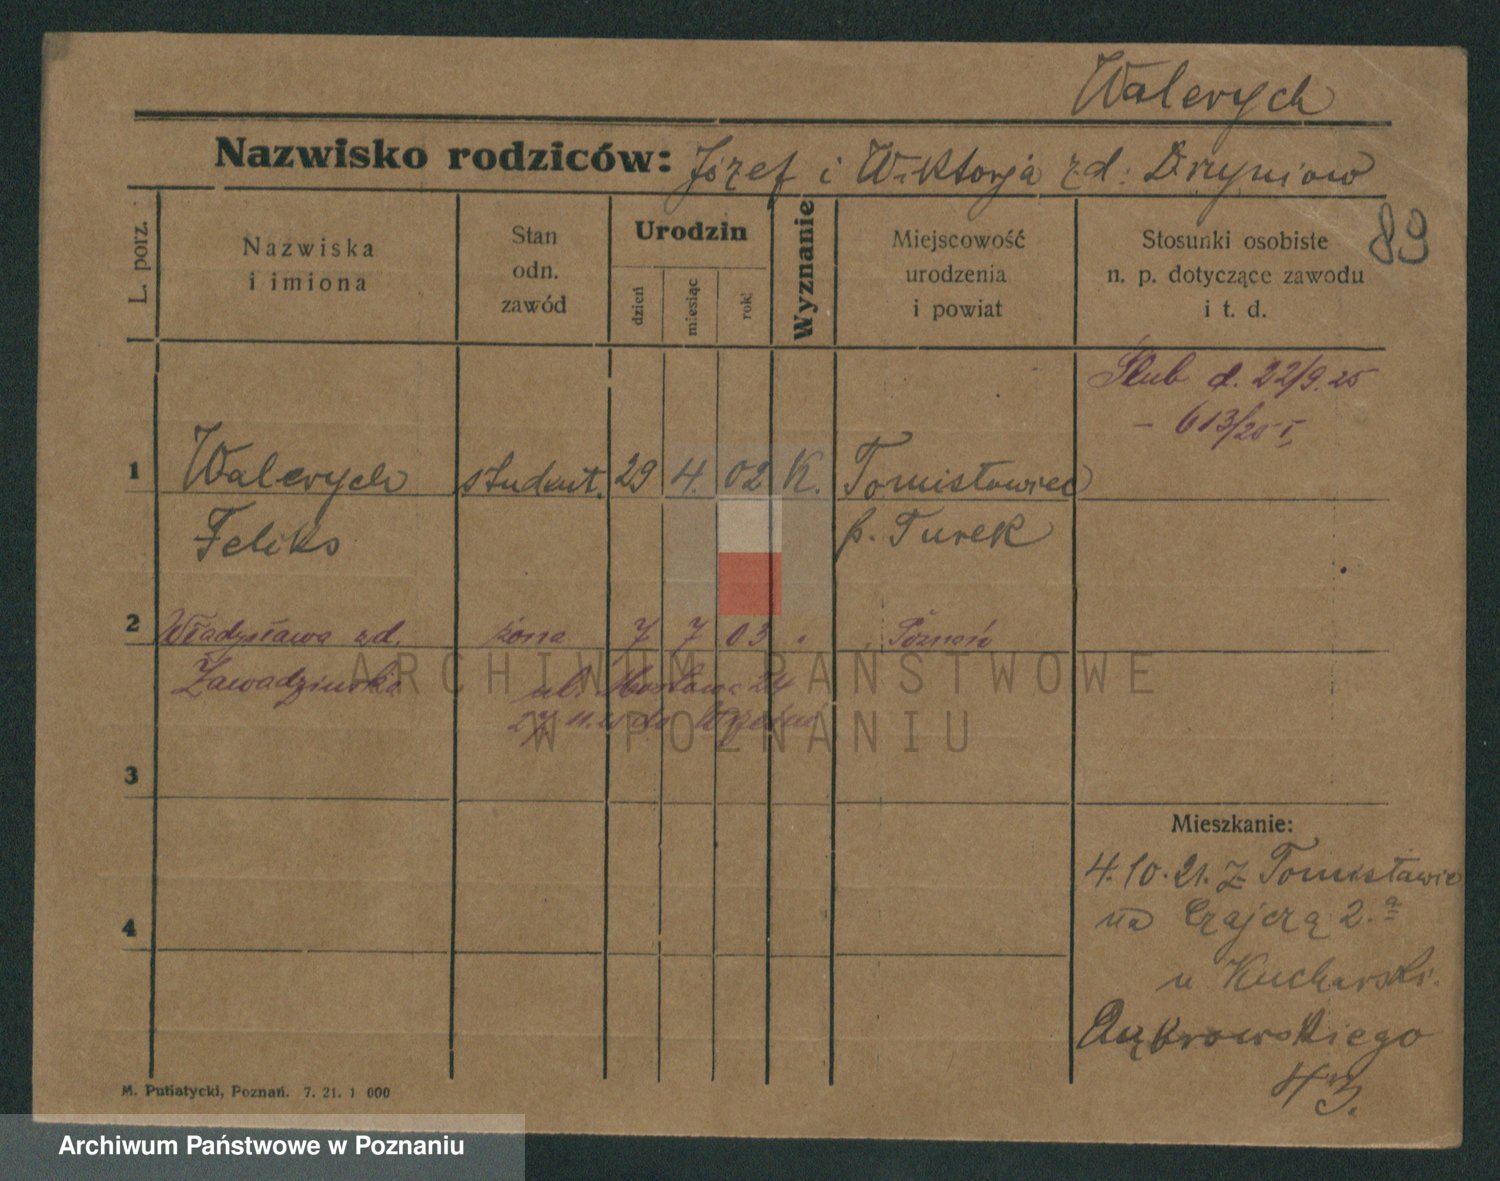 Walerych
Nazwisko rodziców: Józef i Wiktorja zd:
89
L. porz.
Nazwiska
i imiona
Stan
odn.
zawód
Urodzin
dzień
miesiąc
rok
Wyznanie
Miejscowość
urodzenia
i powiat
Stosunki osobiste
n. p. dotyczące zawodu
i t. d.
Ślub d. 22/9. 25
- 613/25 I,
1 Walerych student. 29 4. 02 K. Tomisławiec
Feliks p. Turek
2 Władysława zd. żona 7 7 03 Poznań
Zawadzińska ul. 24
3
4
Mieszkanie:
4.10.21. z Tomisławic
na Czajczą 2.a
u Kucharski.
Dąbrowskiego
43.
M. Putiatycki, Poznań. 7. 21. 1 000
ARCHIWUM PAŃSTWOWE
W POZNANIU
Archiwum Państwowe w Poznaniu